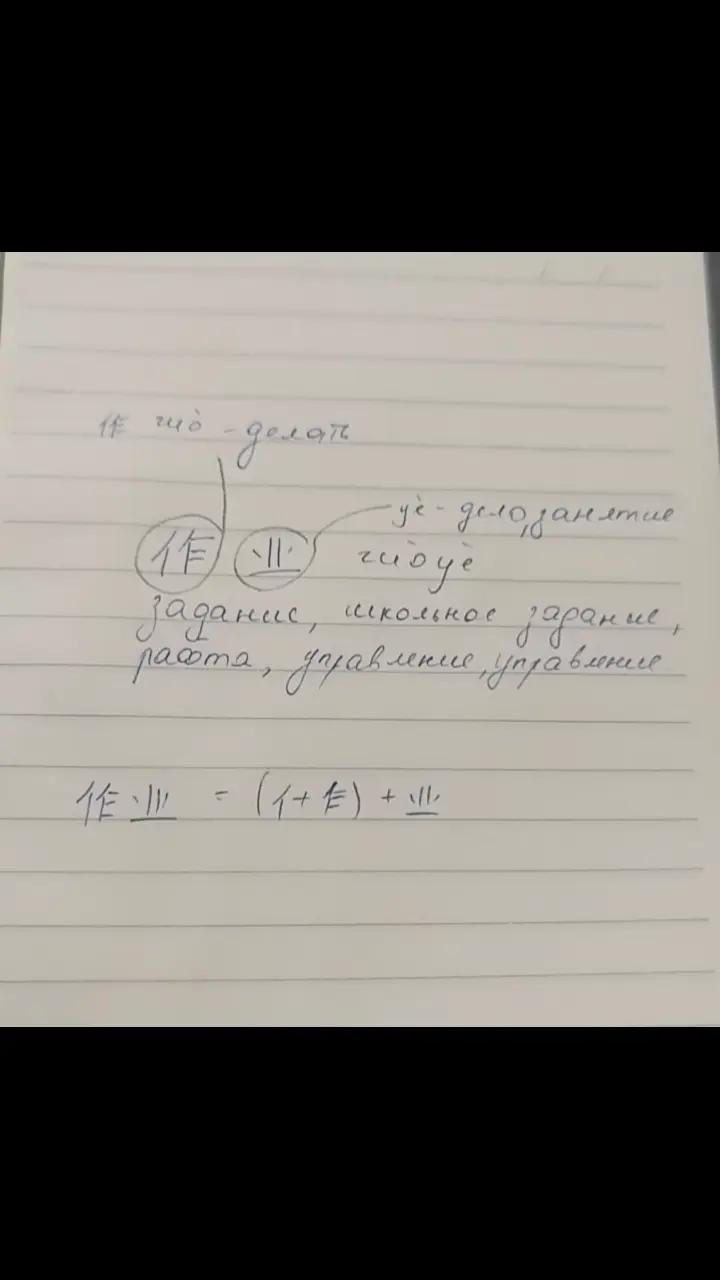 作 zuò - делать
yè - дело, занятие
作业 zuòyè
задание, школьное задание,
работа, управление, управление
作业 = (亻+ 乍) + 业